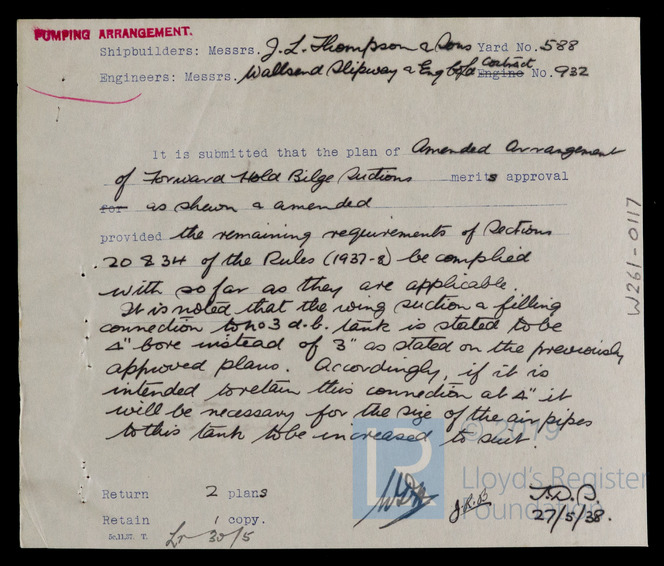 PUMPING ARRANGEMENT.
Shipbuilders: Messrs. J. L. Thompson & Sons Yard No. 588
Engineers: Messrs. Wallsend Slipway & Eng Co Ld Contract Engine No. 932
It is submitted that the plan of Amended Arrangement
of Forward Hold Bilge Suctions merits approval
for as shewn & amended
provided the remaining requirements of Sections
20 & 34 of the Rules (1937-8) be complied
with so far as they are applicable.
It is noted that the wing suction & filling
connection to No 3 d.b. tank is stated to be
4" bore instead of 3" as stated on the previously
approved plans. Accordingly, if it is
intended to retain this connection at 4" it
will be necessary for the size of the air pipes
to this tank to be increased to suit.
© 2019
Lloyd's Register
Foundation
LR
Return 2 plans
Retain 1 copy.
27/5/38.
5c.11.37. T.
Lr 30/5
W261-0117